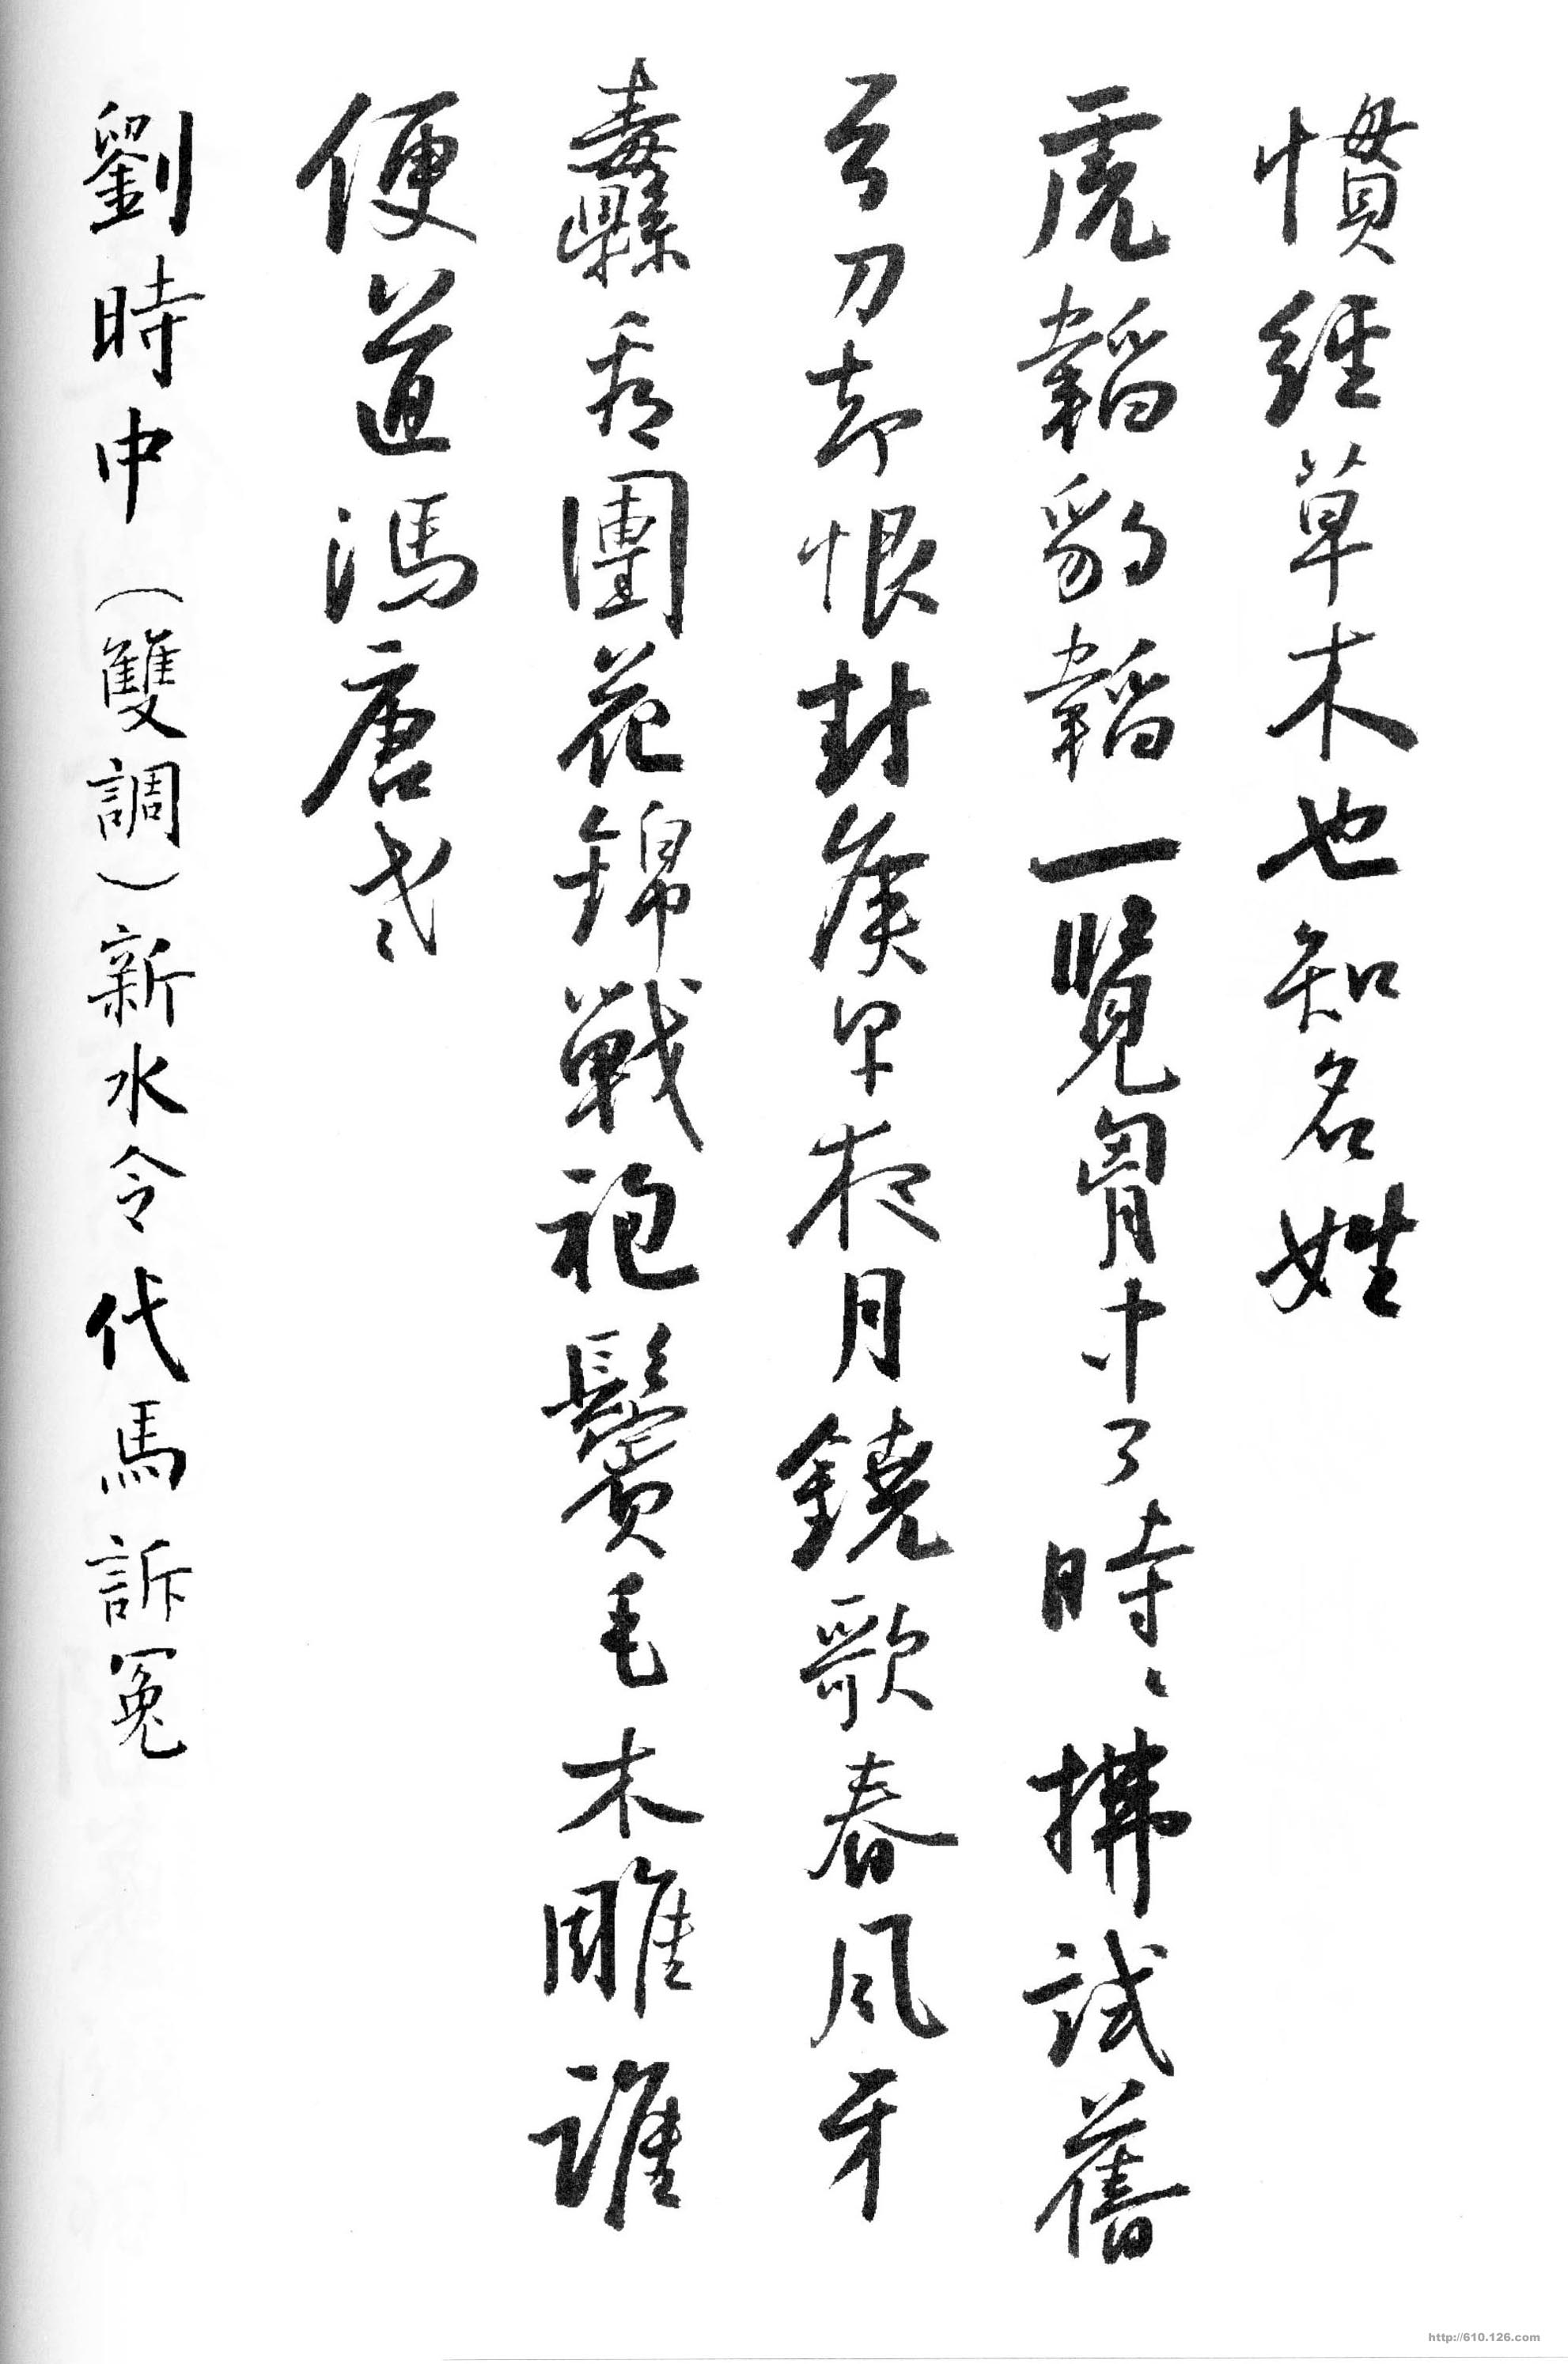 慣經草木也知名姓
虎韜豹韜一覽胷中了時時拂拭舊
弓刀却恨封侯早夜月鐃歌春風牙
纛縣看團花錦戰袍鬢毛木雕誰
便道馮唐老
劉時中（雙調）新水令代馬訴冤
http://610.126.com